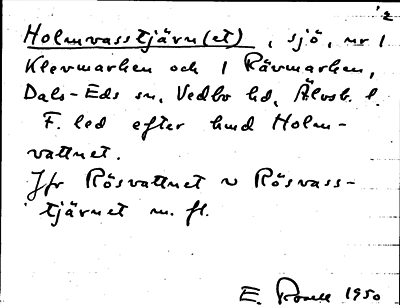 Holmvasstjärn(et), sjö, nr 1
Klevmarken och 1 Rävmarken,
Dals-Eds sn, Vedbo hd, Älvsb. l.
F. led efter hmd Holm-
vattnet.
Jfr Rösvattnet ~ Rösvass-
tjärnet m. fl.
E. 1950